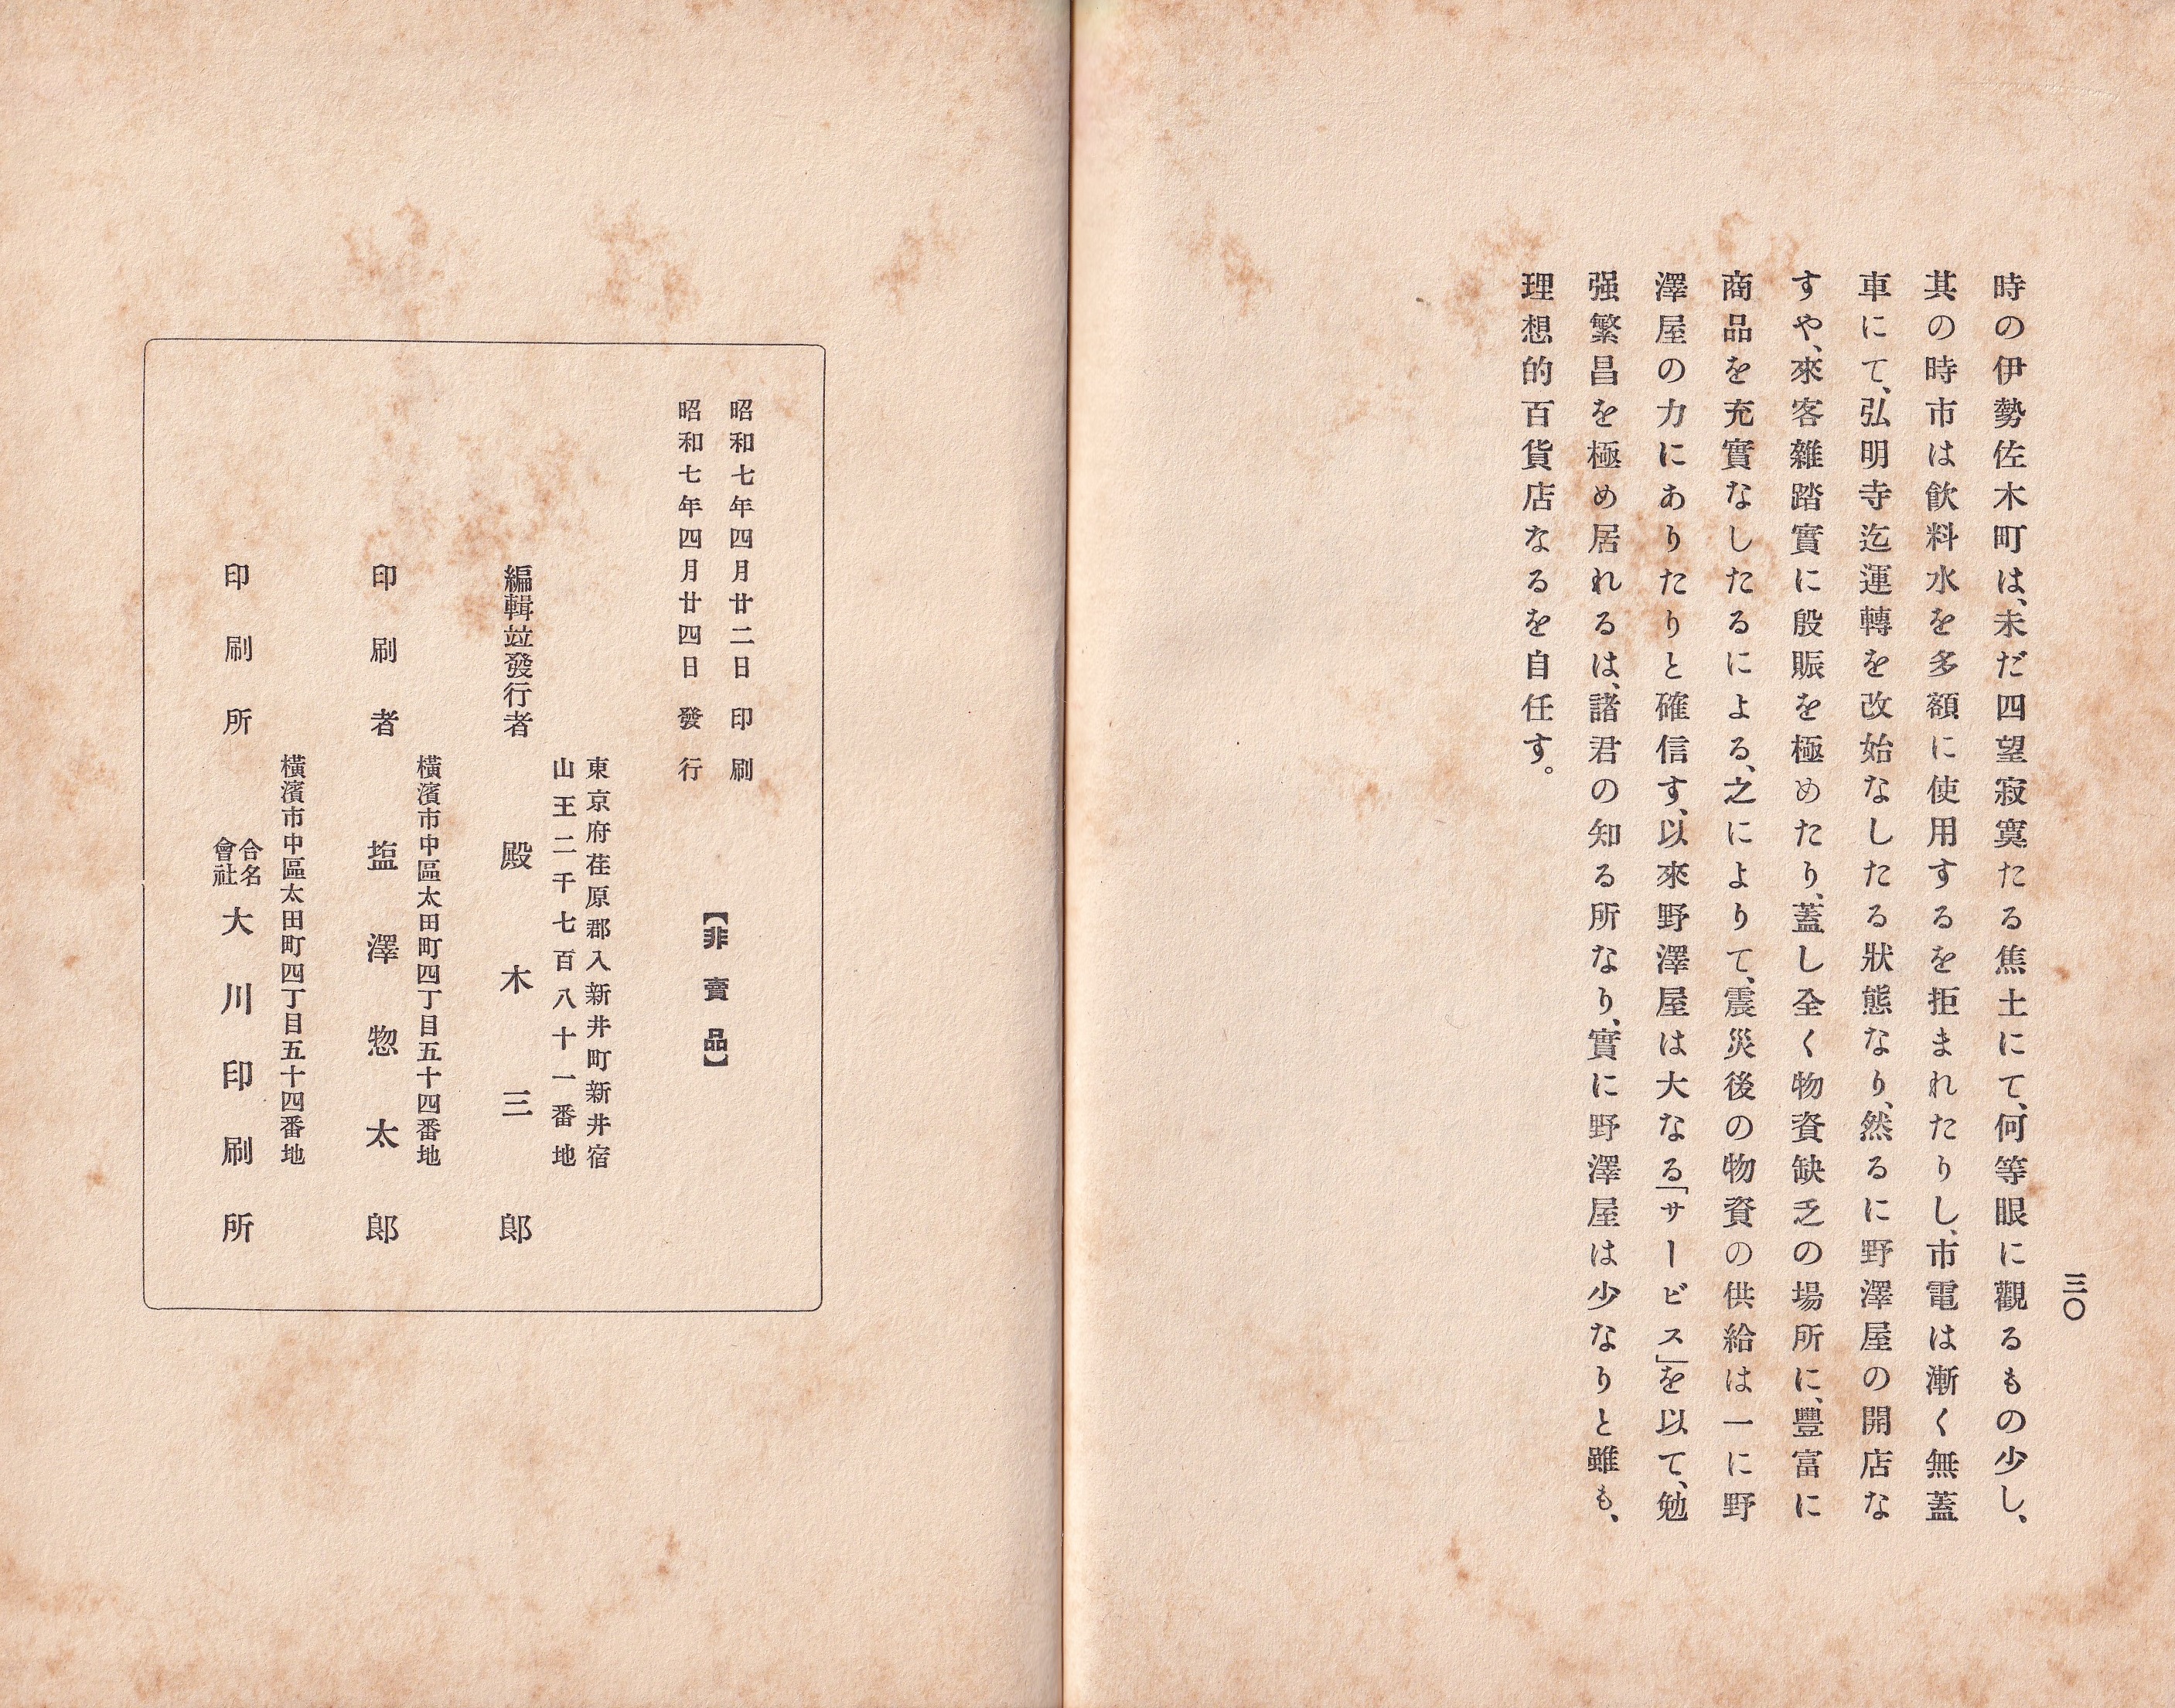 三〇
時の伊勢佐木町は、未だ四望寂寞たる焦土にて、何等眼に觀るもの少し、
其の時市は飮料水を多額に使用するを拒まれたりし、市電は漸く無蓋
車にて、弘明寺迄運轉を改始なしたる狀態なり、然るに野澤屋の開店な
すや、來客雜踏實に殷賑を極めたり、蓋し全く物資缺乏の場所に、豐富に
商品を充實なしたるによる、之によりて、震災後の物資の供給は一に野
澤屋の力にありたりと確信す、以來野澤屋は大なる「サービス」を以て、勉
强繁昌を極め居れるは、諸君の知る所なり、實に野澤屋は少なりと雖も、
理想的百貨店なるを自任す。
昭和七年四月廿二日印刷
昭和七年四月廿四日發行
【非賣品】
東京府荏原郡入新井町新井宿
山王二千七百八十一番地
編輯並發行者 殿木三郎
橫濱市中區太田町四丁目五十四番地
印刷者 塩澤惣太郎
橫濱市中區太田町四丁目五十四番地
印刷所 合名會社 大川印刷所